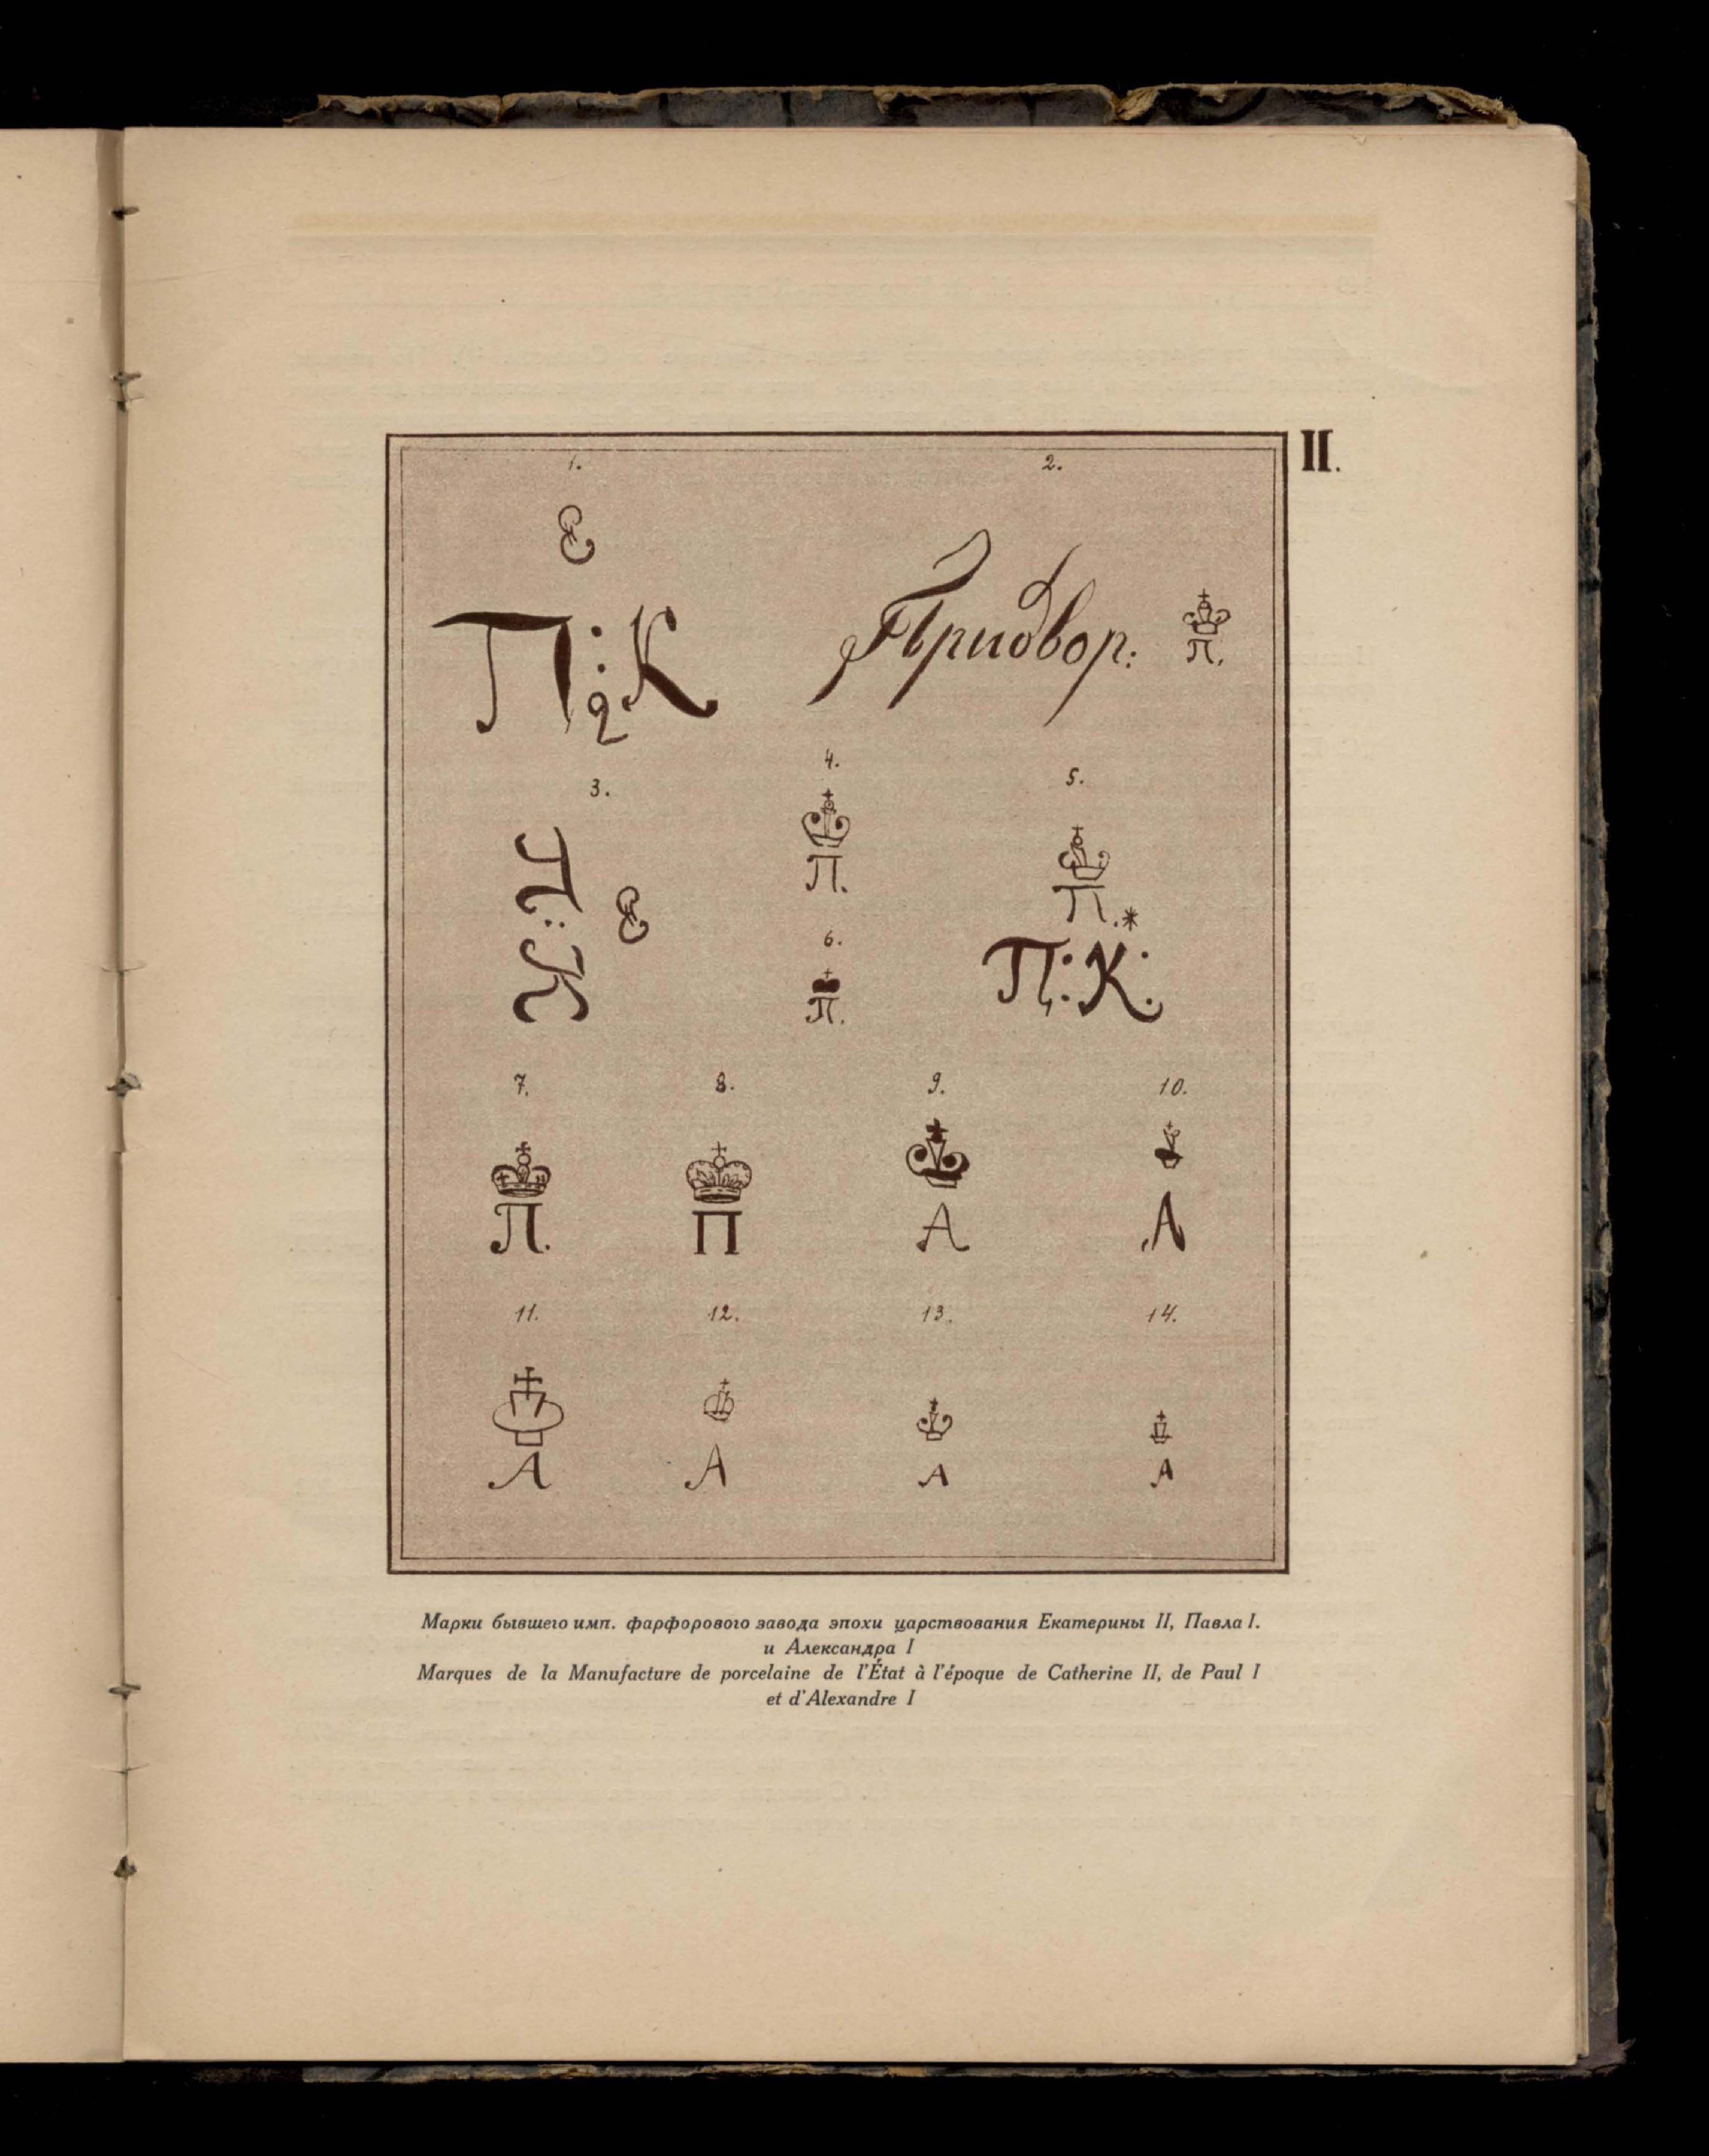 II.
1.
2.
Е
П:К
2
Придвор:
П.
3.
4.
5.
П:К
Е
П.
П.*
6.
П.
П:К:
7.
8.
9.
10.
П.
П
А
А
11.
12.
13.
14.
А
А
А
А
Марки бывшего имп. фарфорового завода эпохи царствования Екатерины II, Павла I.
и Александра I
Marques de la Manufacture de porcelaine de l'État à l'époque de Catherine II, de Paul I
et d'Alexandre I